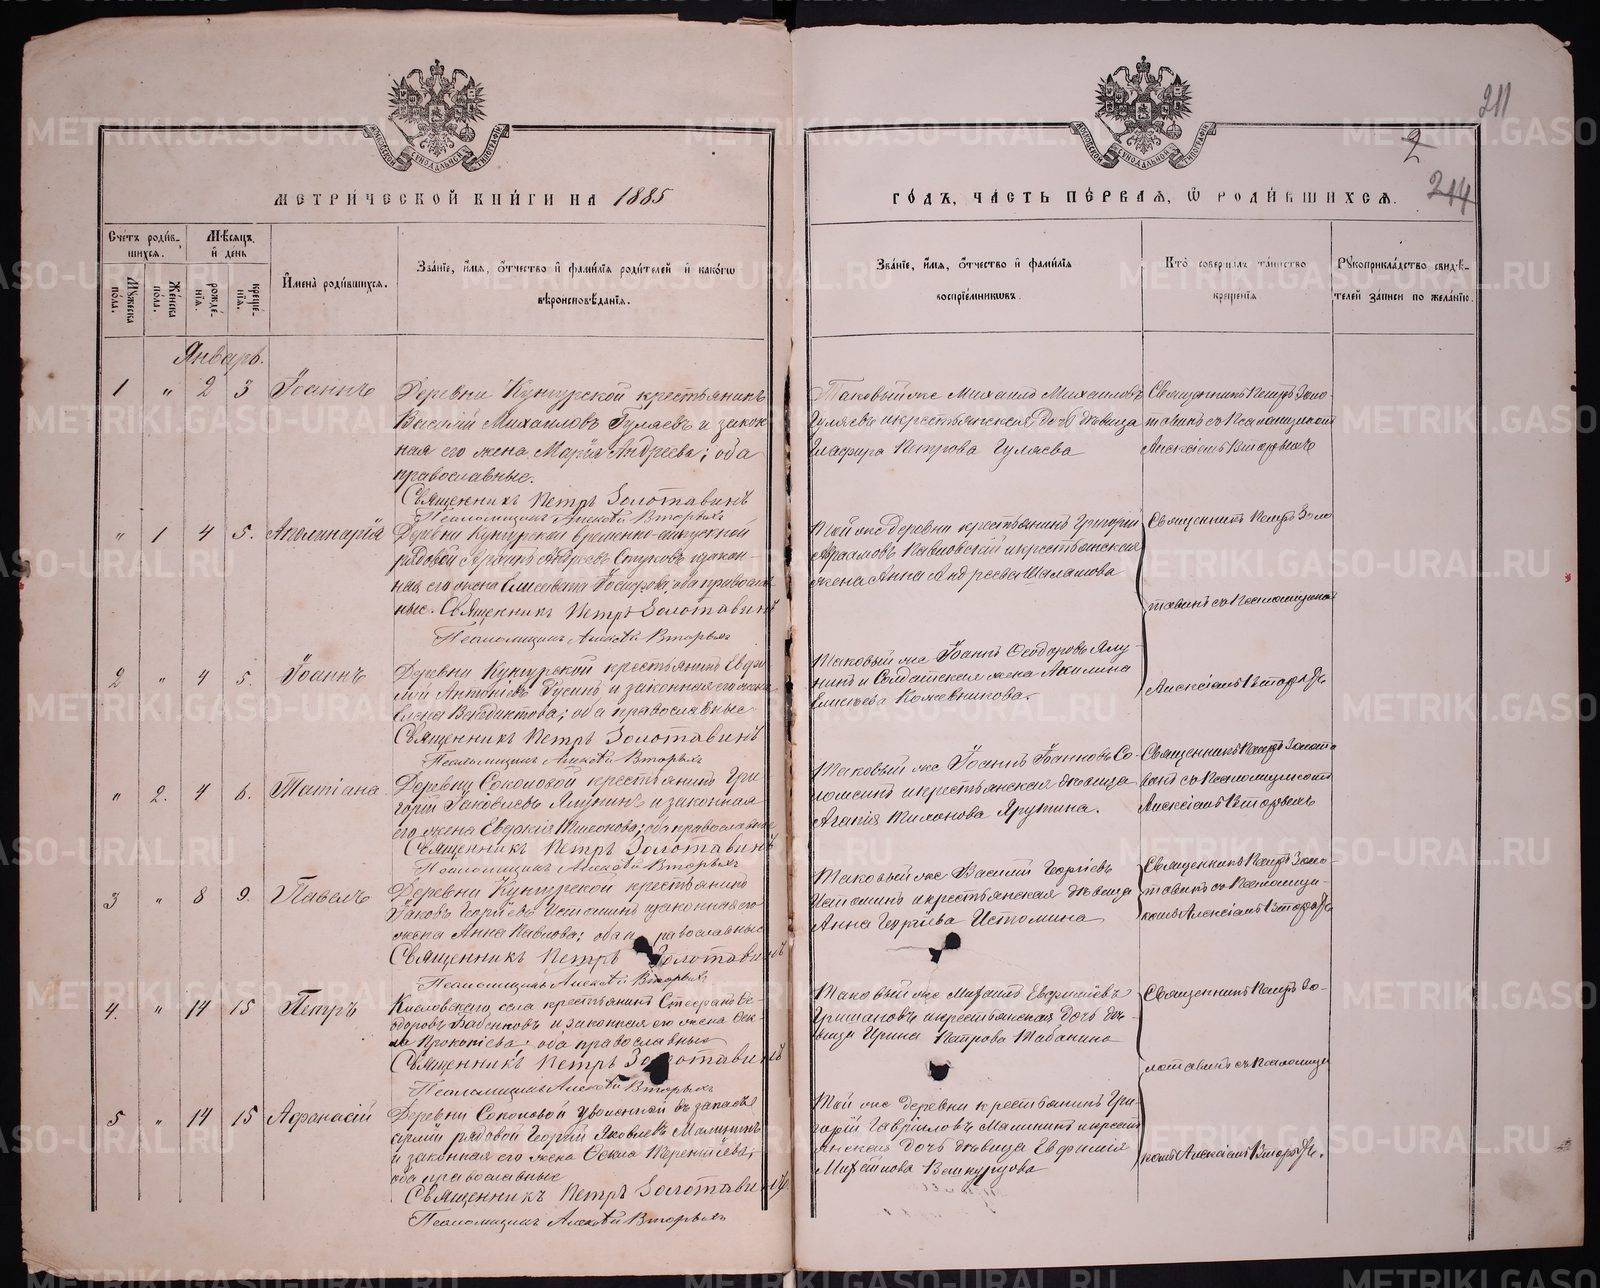 211
2
214
МЕТРИ́ЧЕСКОЙ КНИ́ГИ НА 1885
ГО́ДЪ, ЧА́СТЬ ПЕ́РВАЯ, Ѡ РОДИ́ВШИХСЯ.
Сче́тъ роди́в-
шихся.
Мꙋжеска
по́ла.
Же́нска
по́ла.
Мѣ́сяцъ
и҆ де́нь
рожде́-
нїя.
креще́-
нїя.
И҆мена̀ роди́вшихся.
Зва́нїе, и҆́мя, ѻ҆́тчество и҆ фами́лїя роди́телей и҆ како́гѡ
вѣроисповѣ́данїя.
Зва́нїе, и҆́мя, ѻ҆́тчество и҆ фами́лїя
воспрїе́мникѡвъ.
Кто̀ соверша́лъ та́инство
креще́нїя
Рꙋкоприкла́дство свидѣ́-
телей за́писи по жела́нїю.
Январь.
1 " 2 3 Іоаннъ
Деревни Кунгурской крестьянинъ
Василій Михаиловъ Гуляевъ и закон-
ная его жена Марія Андреева; оба
православные.
Священникъ Петръ Золотавинъ
Псаломщикъ Алексѣй Вторыхъ
Таковый же Михаилъ Михаиловъ
Гуляевъ и крестьянская дочь дѣвица
Глафира Петрова Гуляева
Священникъ Петръ Золо-
тавинъ съ Псаломщикомъ
Алексіемъ Вторыхъ
" 1 4 5. Аполинарія
Деревни Кунгурской временно-отпускной
рядовой Андреевъ и закон-
ная его жена Елисавета оба православ-
ные. Священникъ Петръ Золотавинъ
Псаломщикъ Алексѣй Вторыхъ
Той же деревни крестьянинъ Григорій
Авраамовъ Павловскій и крестьянская
жена Анна Андреева
Священникъ Петръ Золо
тавинъ съ Псаломщико
2 " 4 5. Іоаннъ
Деревни Кунгурской крестьянинъ Евфи-
мій Антоновъ Гусинъ и законная его жена
Елена Венедиктова; оба православные
Священникъ Петръ Золотавинъ
Псаломщикъ Алексѣй Вторыхъ
Таковый же Іоаннъ Ѳеодоровъ Ялу-
нинъ и Солдатская жена Акилина
Елисѣева Кожевникова.
Алексіемъ Вторыхъ
" 2. 4 6. Татіана
Деревни Соколовой крестьянинъ Гри-
горій Іаковлевъ и законная
его жена Евдокія оба православные
Священникъ Петръ Золотавинъ
Псаломщикъ Алексѣй Вторыхъ
Таковый же Іоаннъ Іоанновъ Со-
ломеинъ и крестьянская дѣвица
Агапія Ярутина.
Священникъ Петръ Золота
винъ съ Псаломщикомъ
Алексіемъ Вторыхъ
3 " 8 9. Павелъ
Деревни Кунгурской крестьянинъ
Іаковъ Георгіевъ Истоминъ и законная его
жена Анна Павлова; оба православные
Священникъ Петръ Золотавинъ
Псаломщикъ Алексѣй Вторыхъ
Таковый же Василій Георгіевъ
Истоминъ и крестьянская дѣвица
Анна Георгіева Истомина
Священникъ Петръ Золо-
тавинъ съ Псаломщи-
комъ Алексіемъ Вторыхъ
4. " 14 15 Петръ
Кисловскаго села крестьянинъ Стефанъ Ѳе-
доровъ Бабенковъ и законная его жена Ѳек-
ла Прокопіева; оба православные
Священникъ Петръ Золотавинъ
Псаломщикъ Алексѣй Вторыхъ
Таковый же Михаилъ Евфиміевъ
и крестьянская дочь дѣ-
вица Ирина Петрова Табанина
Священникъ Петръ Зо-
лотавинъ съ Псаломщи
5 " 14 15 Аѳанасій
Деревни Соколовой уволенный въ запасъ
арміи рядовой Георгій Яковлевъ
и законная его жена Ѳекла Терентіева;
оба православные
Священникъ Петръ Золотавинъ
Псаломщикъ Алексѣй Вторыхъ
Той же деревни крестьянинъ Гри-
горій Гавриловъ и крестъ
янская дочь дѣвица Евфимія
комъ Алексіемъ Вторыхъ.